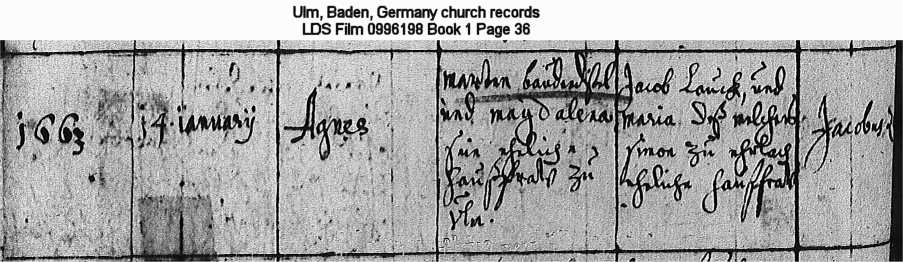 Ulm, Baden, Germany church records
LDS Film 0996198 Book 1 Page 36
1663
14 ianuarÿ
Agnes
Marten
und magdalena
sein ehliche
haussfraw zu
Vlm.
Jacob Lauck, und
maria dess melcher
simon zu
ehliche haussfraw
Jacobus